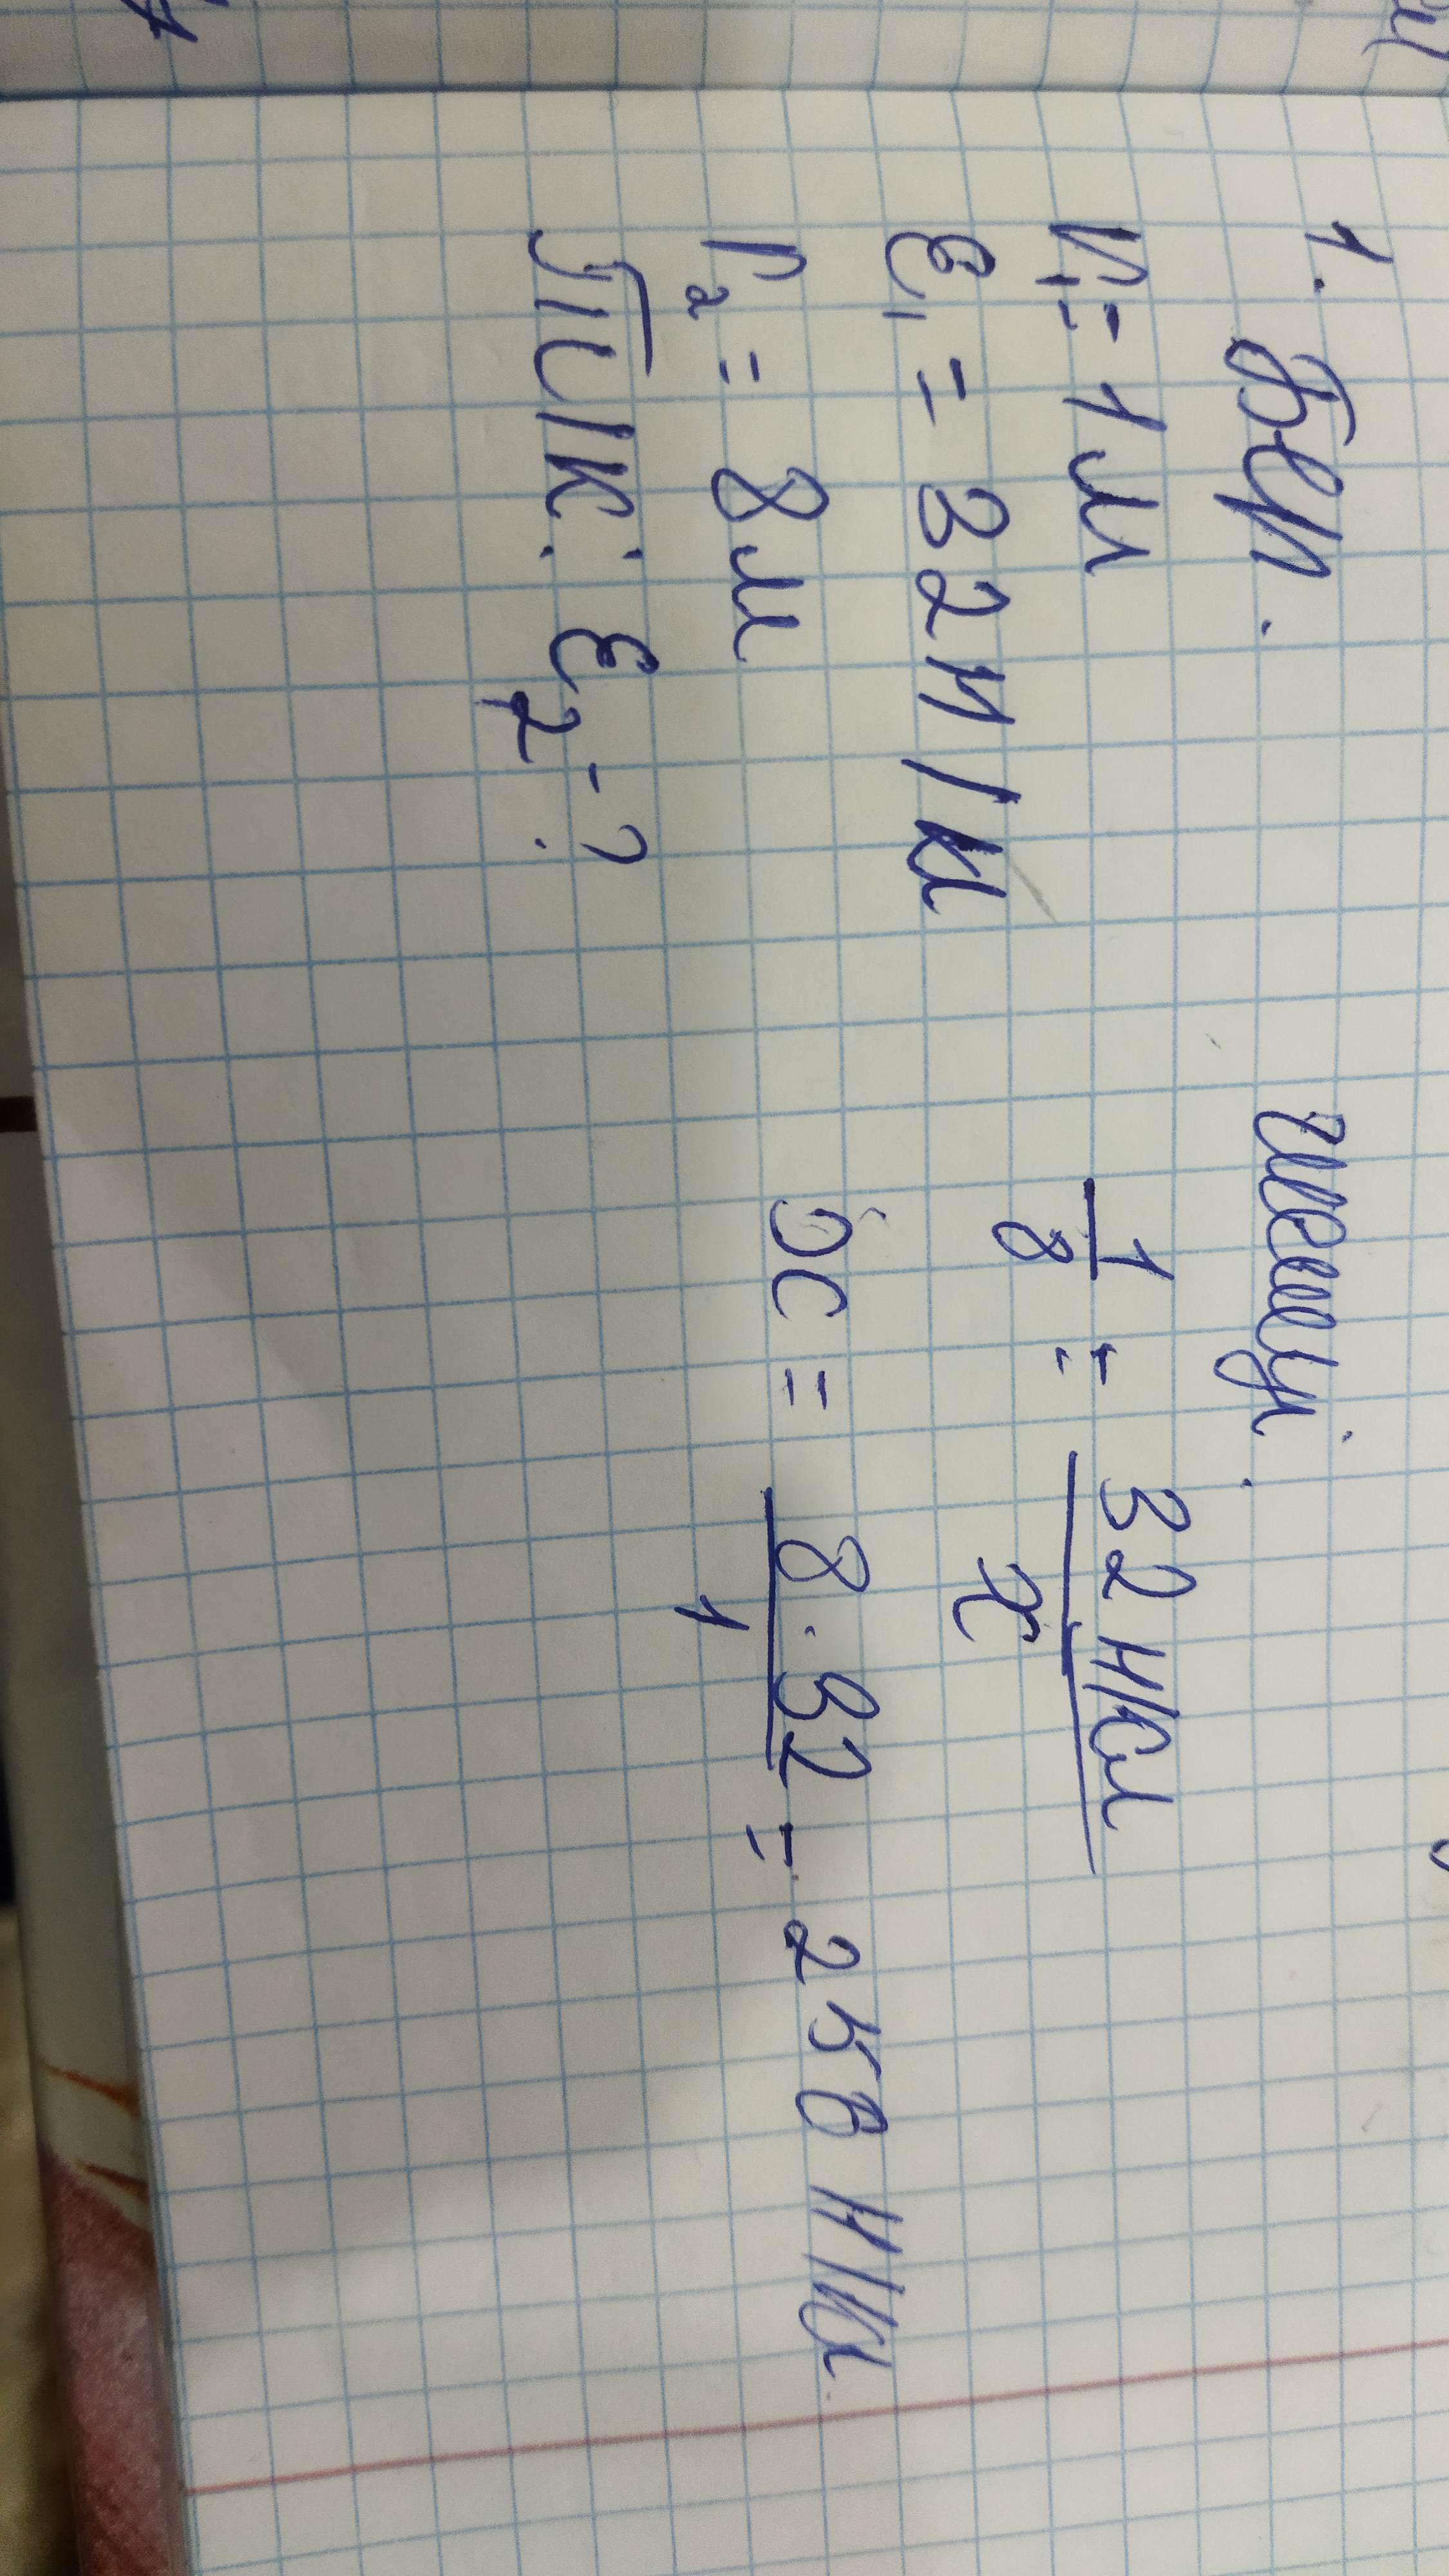 1. Бер.
r₁ = 1м
E₁ = 32 Н/Кл
r₂ = 8м
Т/К: E₂ - ?
Шешуі.
1/8 = 32 Н/Кл / x
x = 8·32 / 1 = 256 Н/Кл